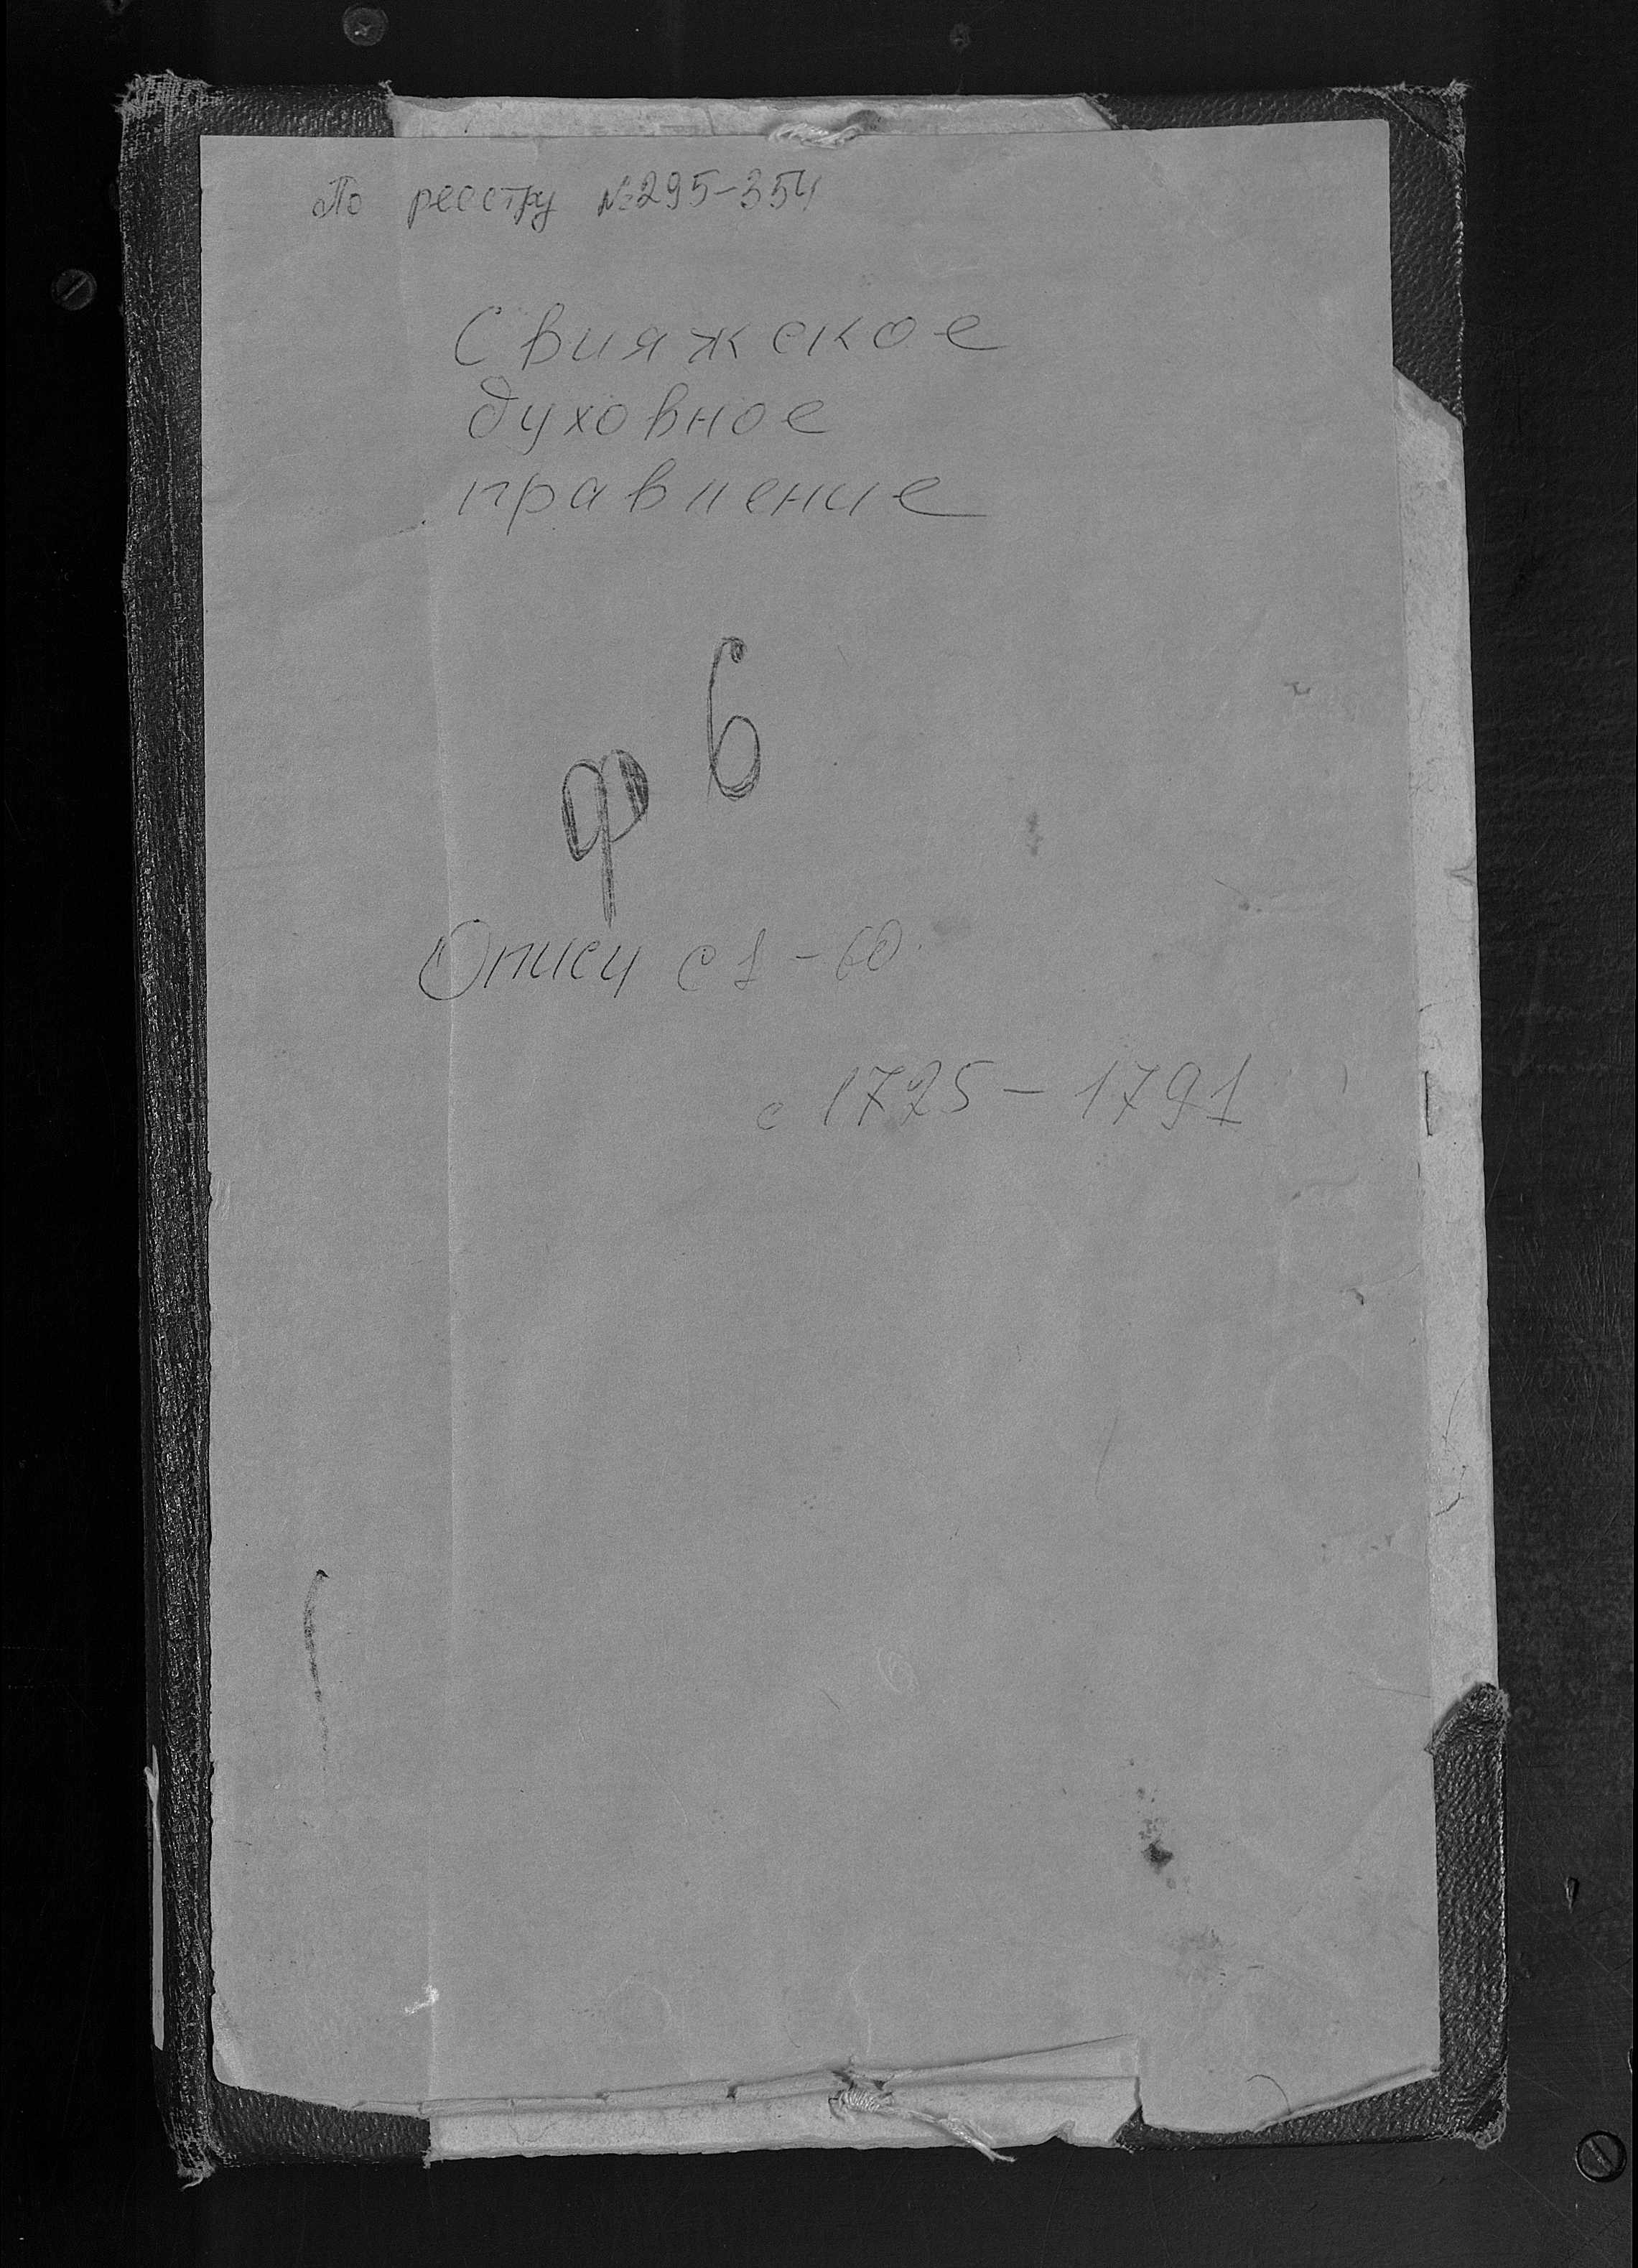 По реестру №295-354
Свияжское
духовное
правление
ф 6
Описи с 1-60
с 1725 - 1791